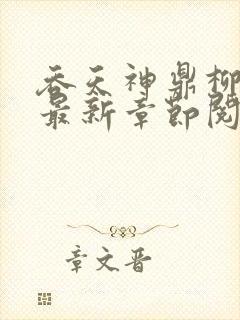 吞天神鼎柳
最新章节阅
章文晋